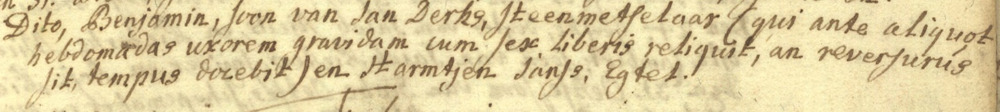 Dito, Benjamin, soon van Jan Derks, steenmetselaar (qui ante aliquot
hebdomadas uxorem gravidam cum sex liberis reliquit, an reversurus
sit, tempus docebit) en Harmtjen Jansz, Egtel.